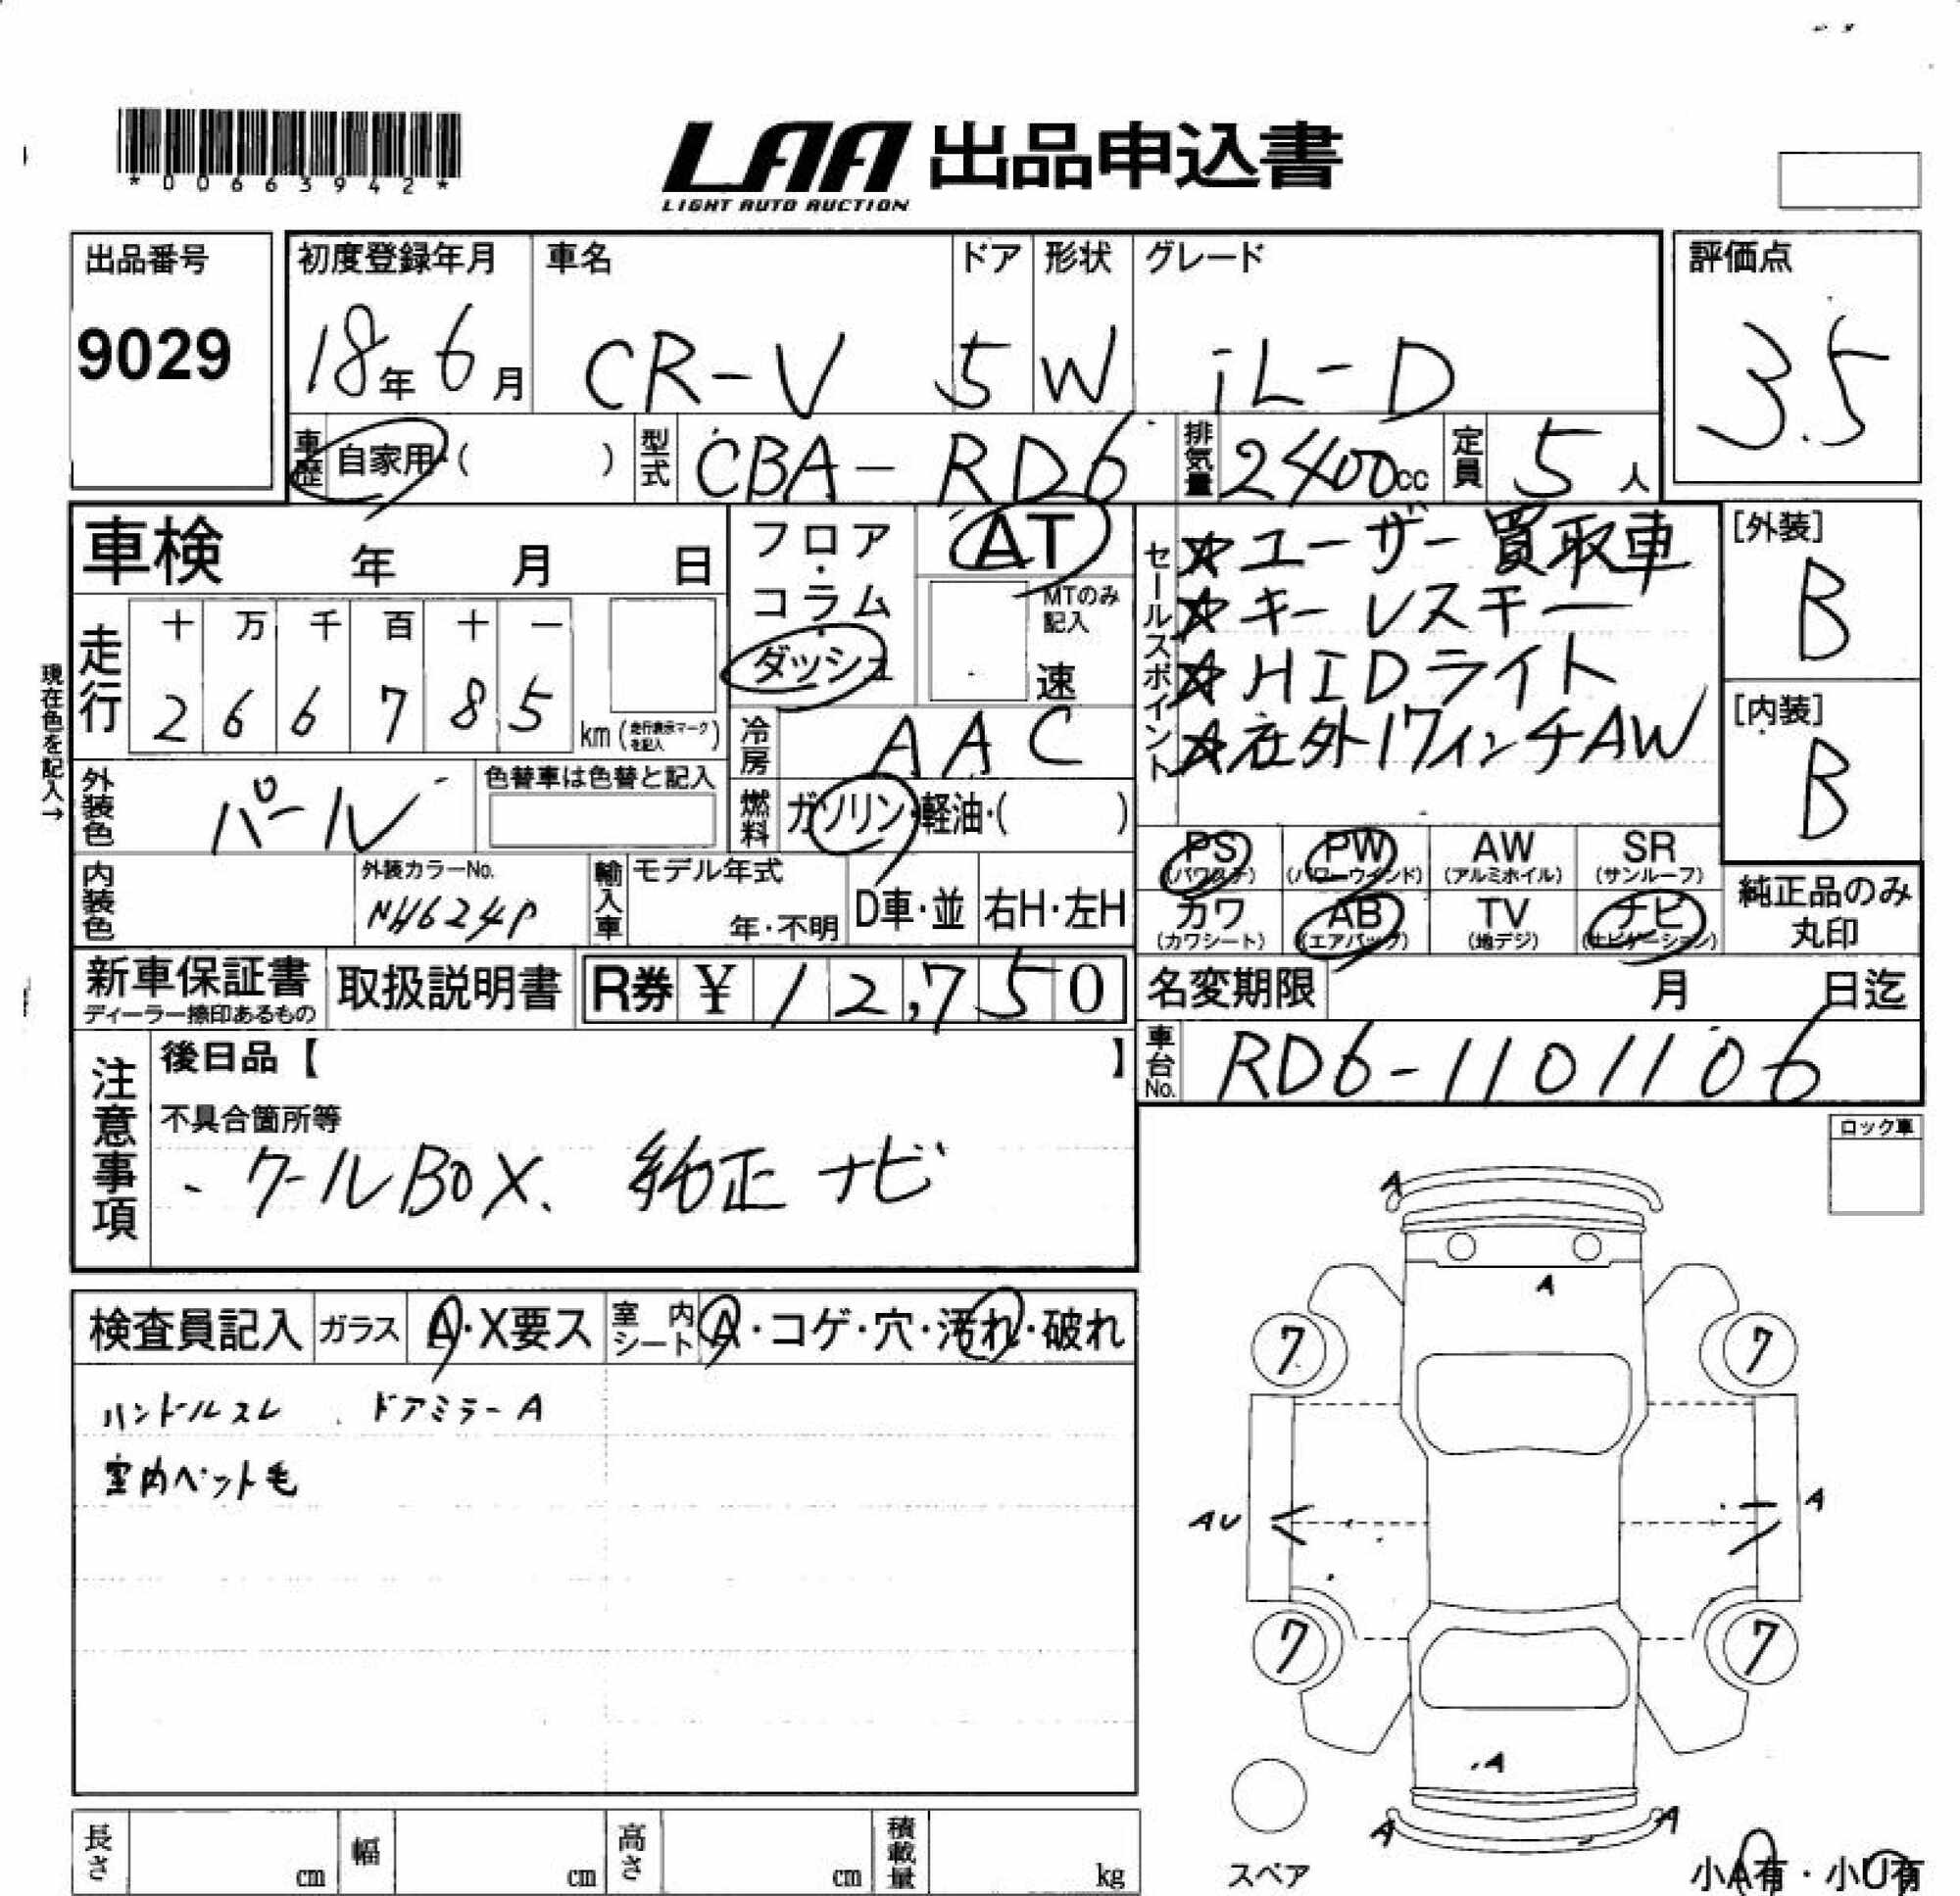 *00663942*
LAA 出品申込書
LIGHT AUTO AUCTION
出品番号
9029
初度登録年月
18年 6月
車名
CR-V
ドア
5
形状
W
グレード
iL-D
評価点
3.5
車歴 自家用・( )
型式 CBA-RD6
排気量 2400cc
定員 5人
車検 年 月 日
フロア・コラム
ダッシュ
AT
MTのみ記入
速
セールスポイント
☆ユーザー買取車
☆キーレスキー
☆HIDライト
☆社外17インチAW
[外装]
B
[内装]
B
現在色を記入→
走行
十 万 千 百 十 一
2 6 6 7 8 5
km(走行表示マークを記入)
冷房 AAC
外装色 パール
色替車は色替と記入
燃料 ガソリン・軽油・( )
PS (パワステ)
PW (パワーウインド)
AW (アルミホイル)
SR (サンルーフ)
カワ (カワシート)
AB (エアバッグ)
TV (地デジ)
ナビ (ナビゲーション)
純正品のみ丸印
内装色
外装カラーNo.
NH624P
輸入車
モデル年式
年・不明
D車・並
右H・左H
新車保証書
ディーラー捺印あるもの
取扱説明書
R券 ¥ 12,750
名変期限 月 日迄
車台No. RD6-1101106
注意事項
後日品【 】
不具合箇所等
クールBOX、純正ナビ
ロック車
検査員記入 ガラス A・X要ス 室内シート A・コゲ・穴・汚れ・破れ
ハンドルスレ、ドアミラーA
室内ペット毛
A
A
7 7
AU A
7 7
A
A A
スペア
小A有・小U有
長さ cm 幅 cm 高さ cm 積載量 kg